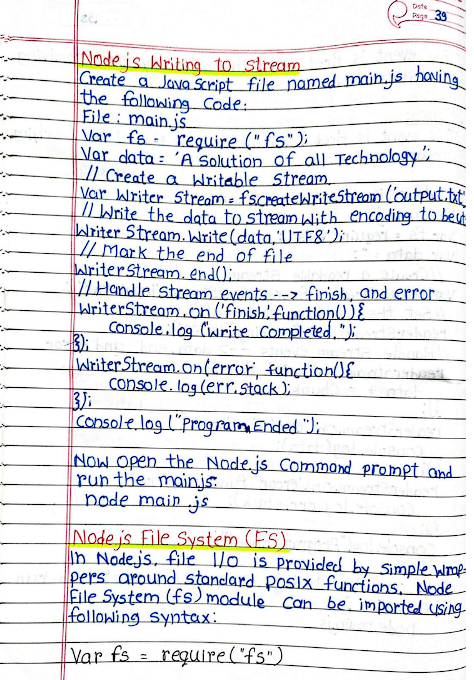 Date
Page 39
Node js Writing to stream
Create a JavaScript file named main.js having
the following Code:
File : main.js
Var fs = require ("fs");
Var data = 'A Solution of all Technology';
// Create a Writable Stream
Var Writer Stream = fs.createWriteStream ('output.txt'
// Write the data to stream with encoding to be ut
Writer Stream. Write (data, 'UTF8');
// Mark the end of file
Writer Stream. end();
// Handle Stream events --> finish, and error
Writer Stream. on ('finish', function() ) {
console.log ("Write Completed.");
});
Writer Stream. on (error', function(){
console. log (err. stack);
});
Console. log ("Program Ended ");
Now open the Node.js Command prompt and
run the mainjs:
node main js
Node js File System (FS)
In Nodejs, file I/O is provided by simple wrap-
pers around standard posix functions. Node
File System (fs) module can be imported using
following syntax:
Var fs = require ("fs")